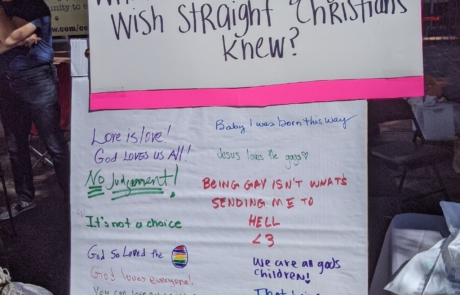 unity to
ww.com/ce
Wish Straight "Christians
Knew?
Love is love!
God Loves us All!
No Judgement!
It's not a choice
God So Loved the
God loves everyone!
Baby I was born this way
Jesus loves the gays
BEING GAY ISN'T WHATS
SENDING ME TO
HELL
<3
We are all gods
children!